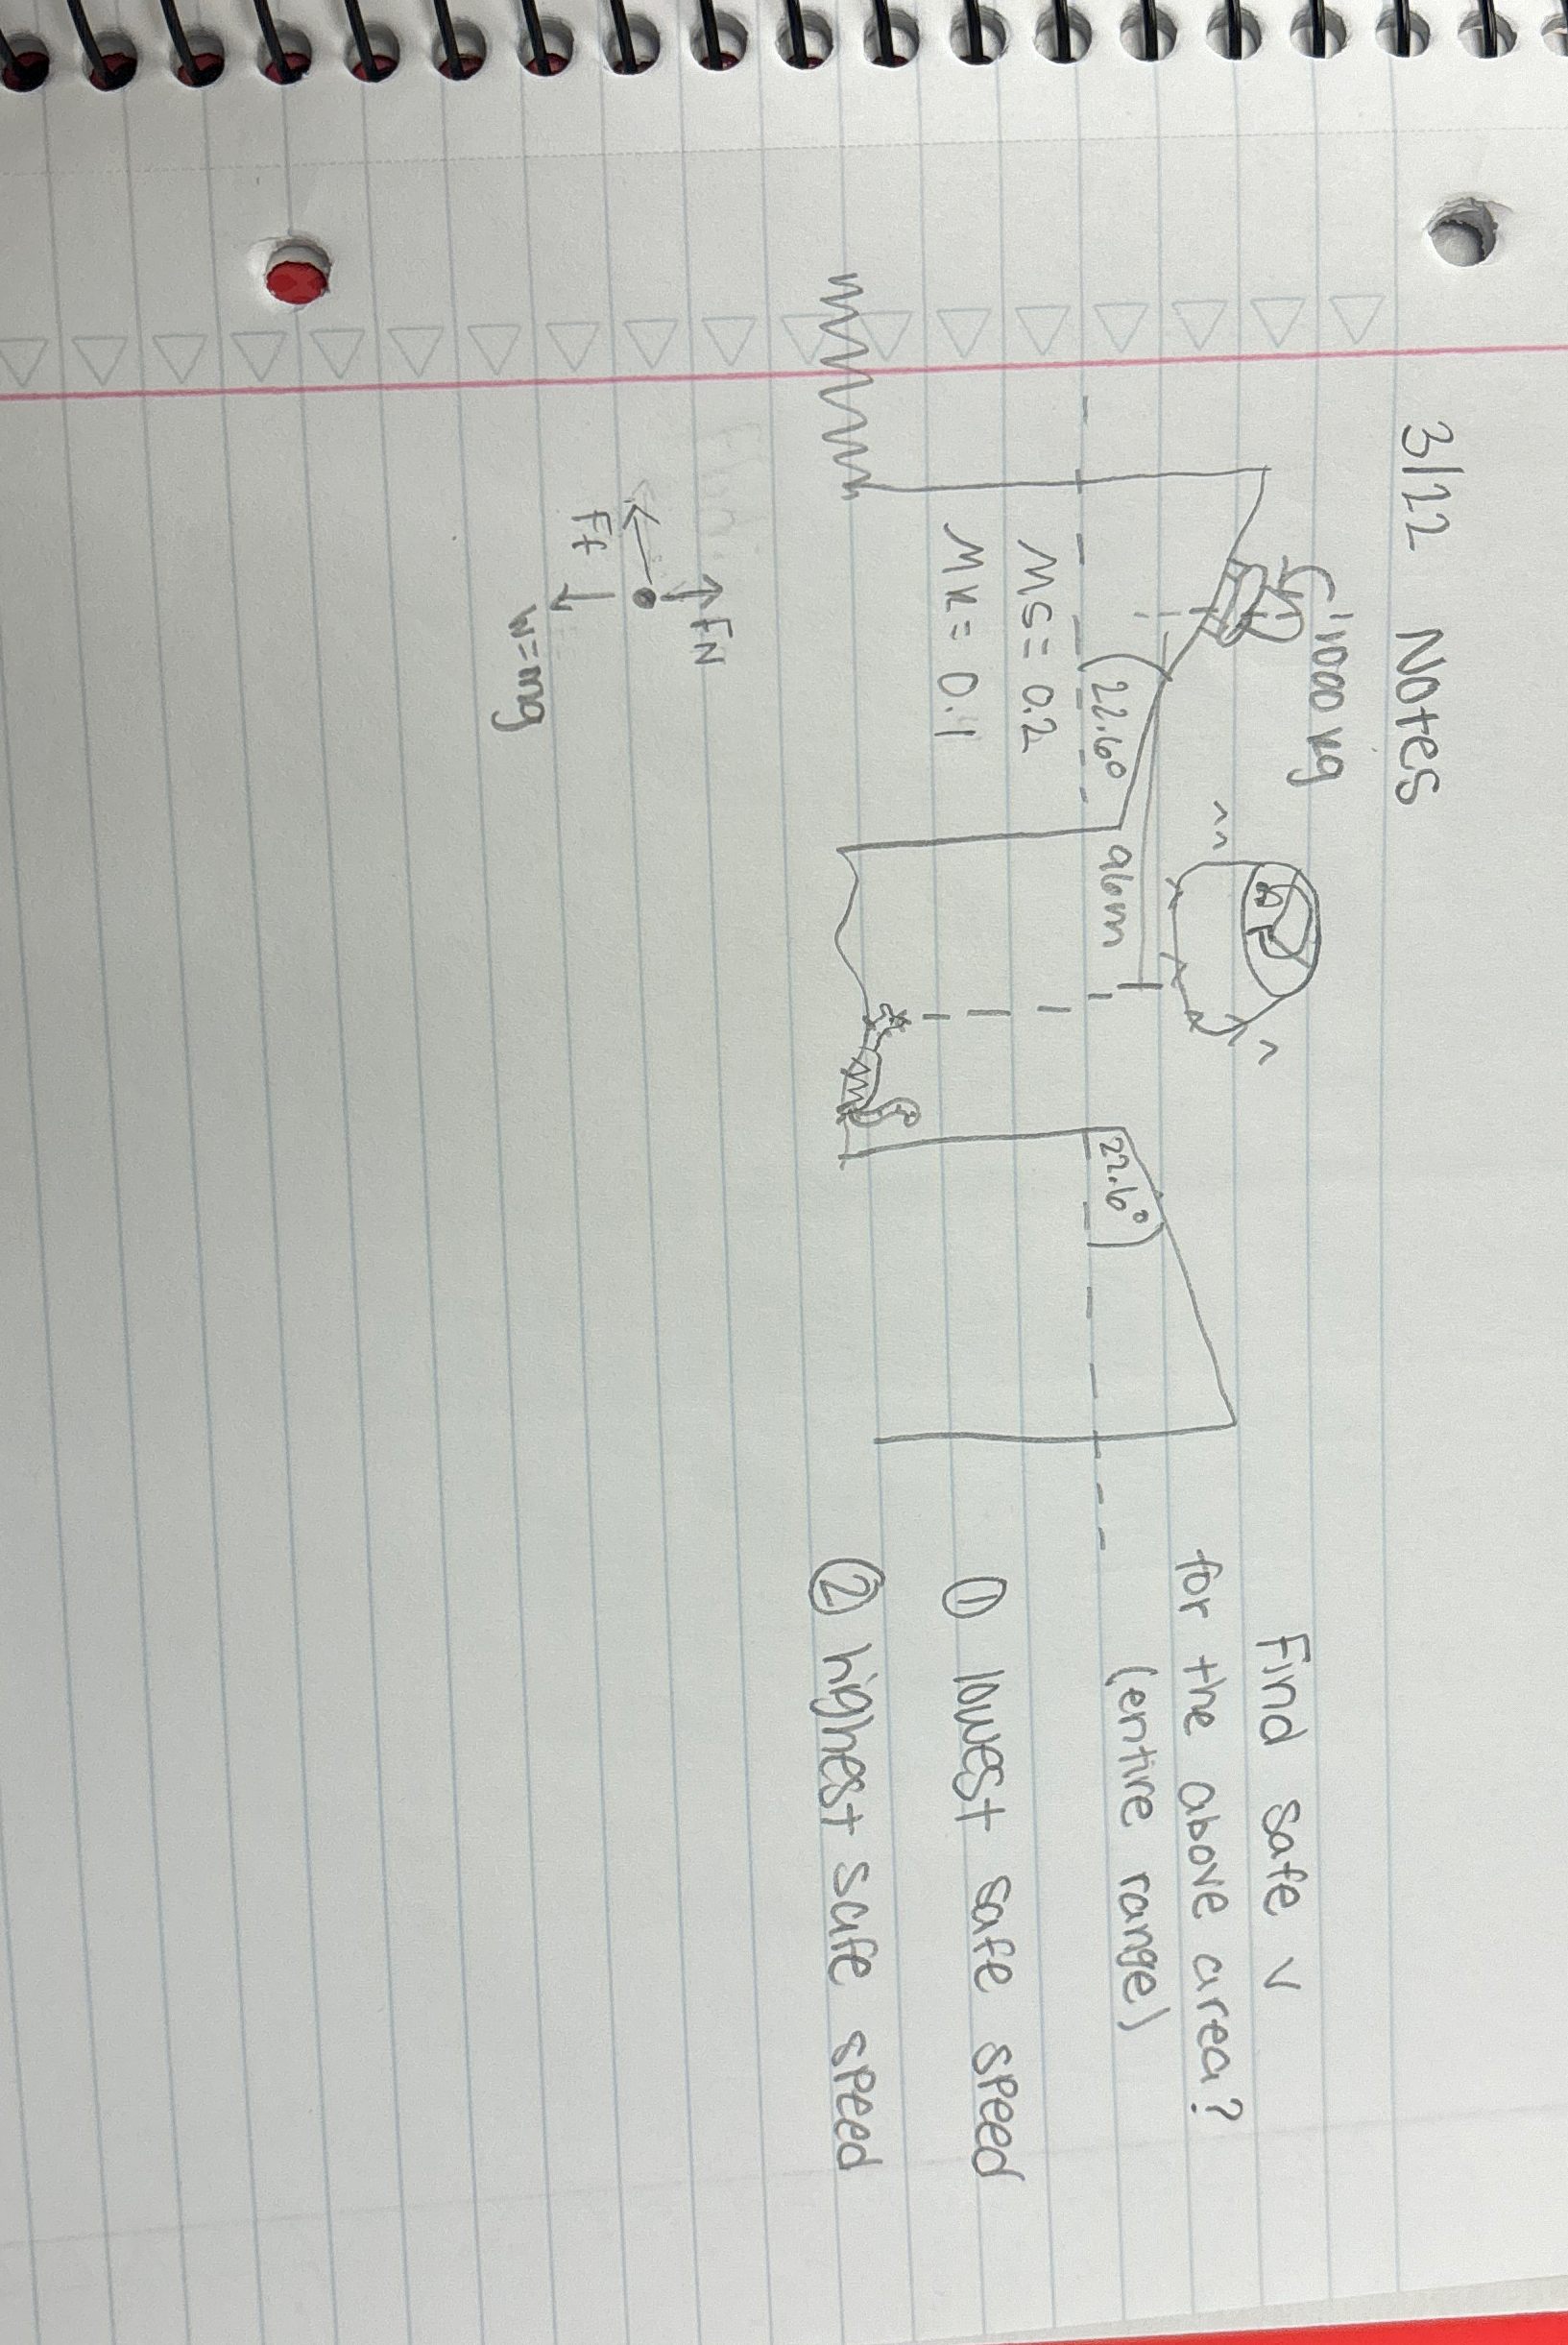 3/22 Notes
1000 kg
Find safe v
for the above area?
(entire range)
22.6°
96m
22.6°
Ms = 0.2
Mk = 0.1
① lowest safe speed
② highest safe speed
FN
Ff
W=mg